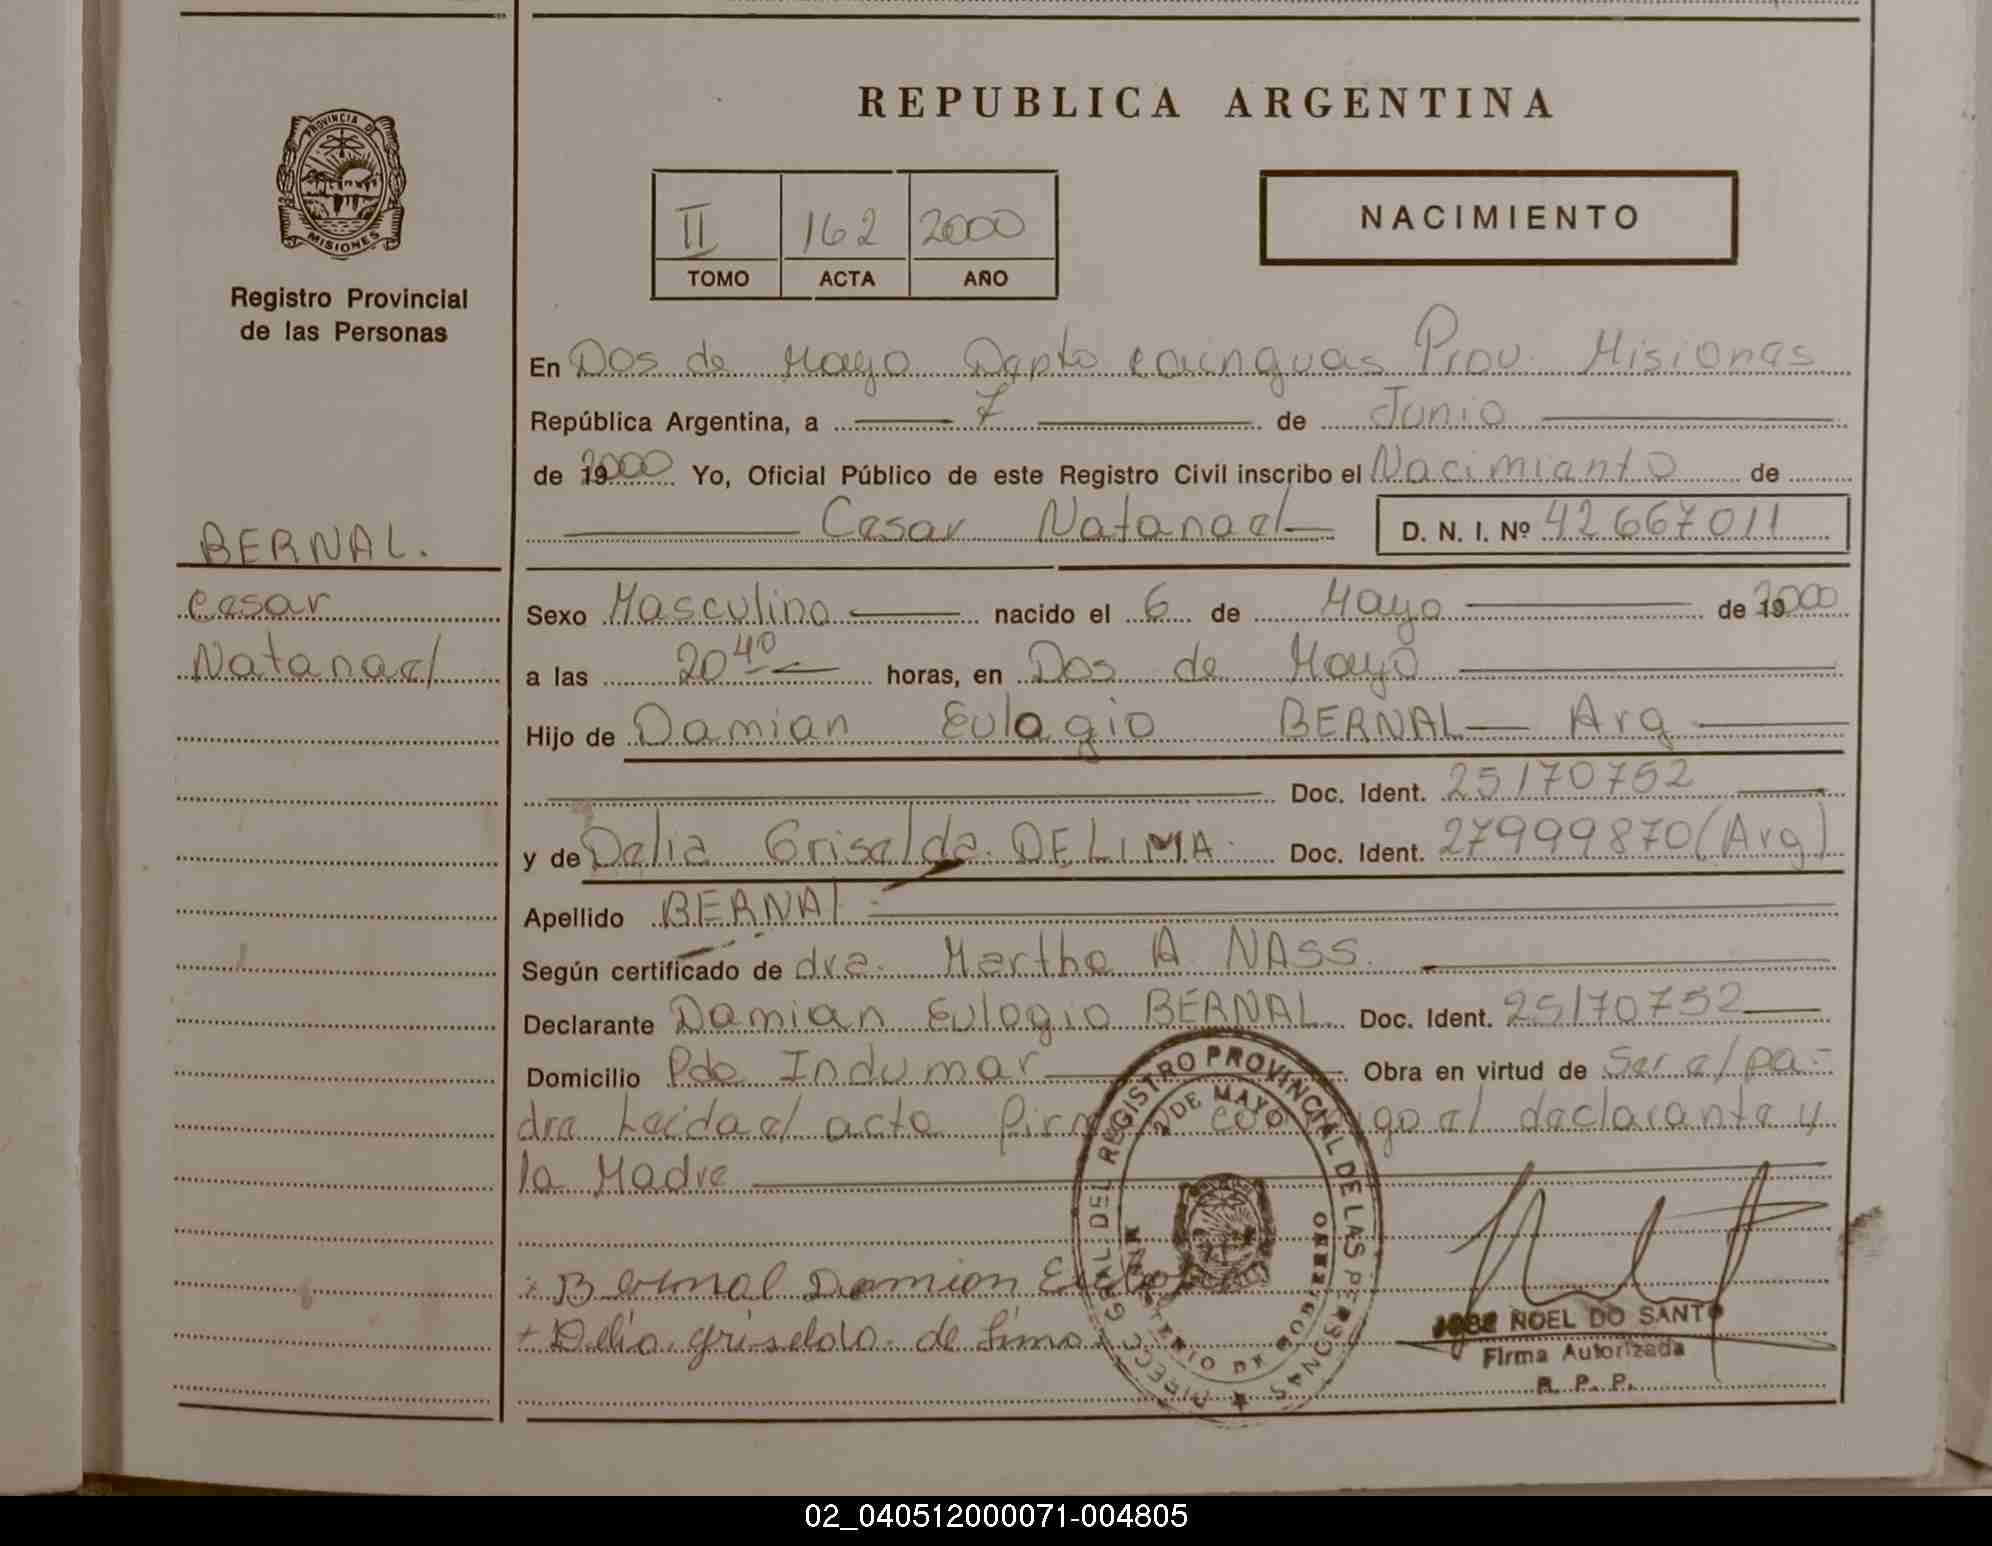 REPUBLICA ARGENTINA
PROVINCIA DE
MISIONES
Registro Provincial
de las Personas
II 162 2000
TOMO ACTA AÑO
NACIMIENTO
En Dos de Mayo Dpto cainguas Prov. Misiones
República Argentina, a 7 de Junio
de 2000 Yo, Oficial Público de este Registro Civil inscribo el Nacimiento de
Cesar Natanael D. N. I. Nº 42667011
BERNAL.
Cesar
Natanael
Sexo Masculino nacido el 6 de Mayo de 2000
a las 20 40 horas, en Dos de Mayo
Hijo de Damian Eulogio BERNAL Arg
Doc. Ident. 25170752
y de Delia Griselda DE LIMA. Doc. Ident. 27999870 (Arg)
Apellido BERNAL
Según certificado de dra. Martha A NASS.
Declarante Damian Eulogio BERNAL Doc. Ident. 25170752
Domicilio Pde Indumar Obra en virtud de Ser el pa-
dre Leida el acta firma conmigo el declarante y
la Madre
Bernal Damion
Delia griselda de Lima
DIRECC GRAL DEL REGISTRO PROVINCIAL DE LAS PERSONAS
2 DE MAYO
MINISTERIO DE GOBIERNO
JOSE NOEL DO SANTO
Firma Autorizada
R. P. P.
02_040512000071-004805